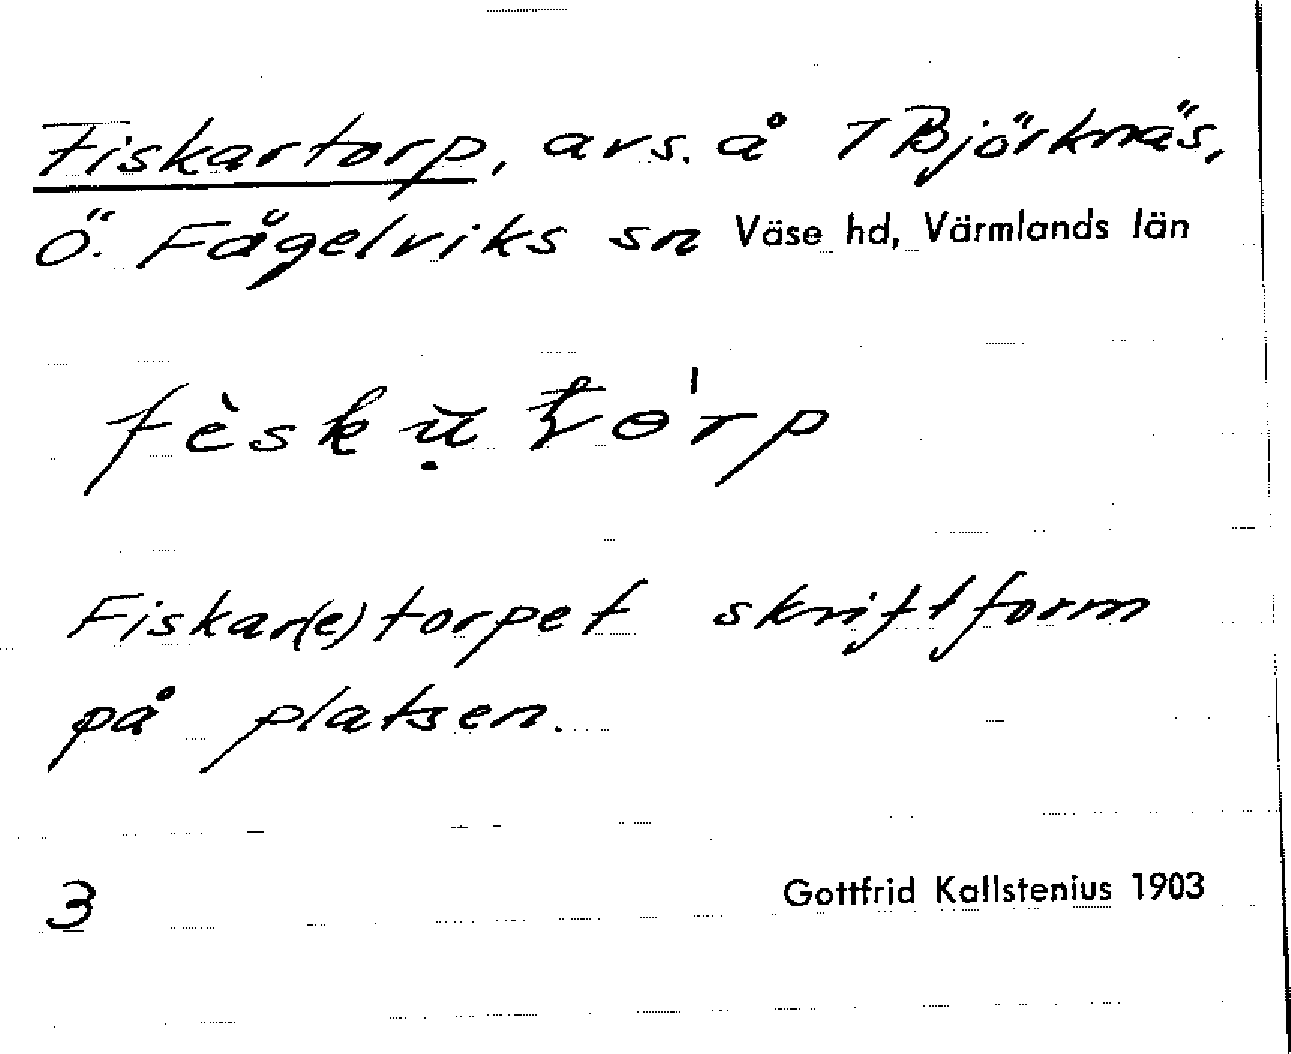 Fiskartorp, avs. å 1 Björknäs,
Ö. Fågelviks sn Väse hd, Värmlands län
Fiskar(e)torpet skriftform
på platsen.
3 Gottfrid Kallstenius 1903